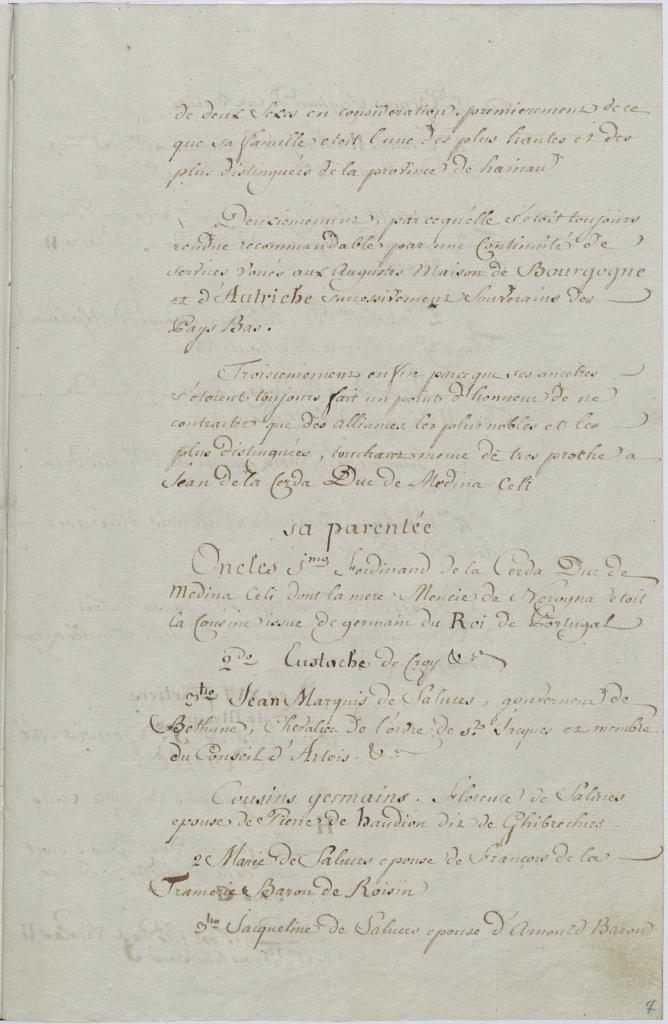 de deux sexes en consideration, premierement de ce
que sa famille etoit l'une des plus hautes et des
plus distinguées de la province de hainau
Deuxiemement, parcequ'elle s'etoit toujours
rendue recommandable par une Continuité de
services voués aux Augustes Maison de Bourgogne
et d'Autriche successivement Souverains des
Pays Bas.
Troisiemement enfin parceque ses ancetres
s'étoient toujours fait un point d'honneur de ne
contracter que des alliances les plus nobles et les
plus distinguées, touchant meme de tres proche a
Jean de la Cerda Duc de Medina Celi
sa parentée
Oncles 1mo Ferdinand de la Cerda Duc de
Medina Celi dont la mere Mencie de etoit
la Cousine issue de germain du Roi de Portugal
2do Eustache de Croy &a
3tio Jean Marquis de Saluces, gouverneur de
Bethune, Chevalier de l'ordre de St Jacques et membre
du Conseil d'Artois. &a
Cousins germains. Florence de Saluces
epouse de Pierre de haudion dit de Ghibrechies
2 Marie de Saluces epouse de François de la
Tramerie Baron de Roisin
3tio Jacqueline de Saluces epouse d'Arnould Baron
7